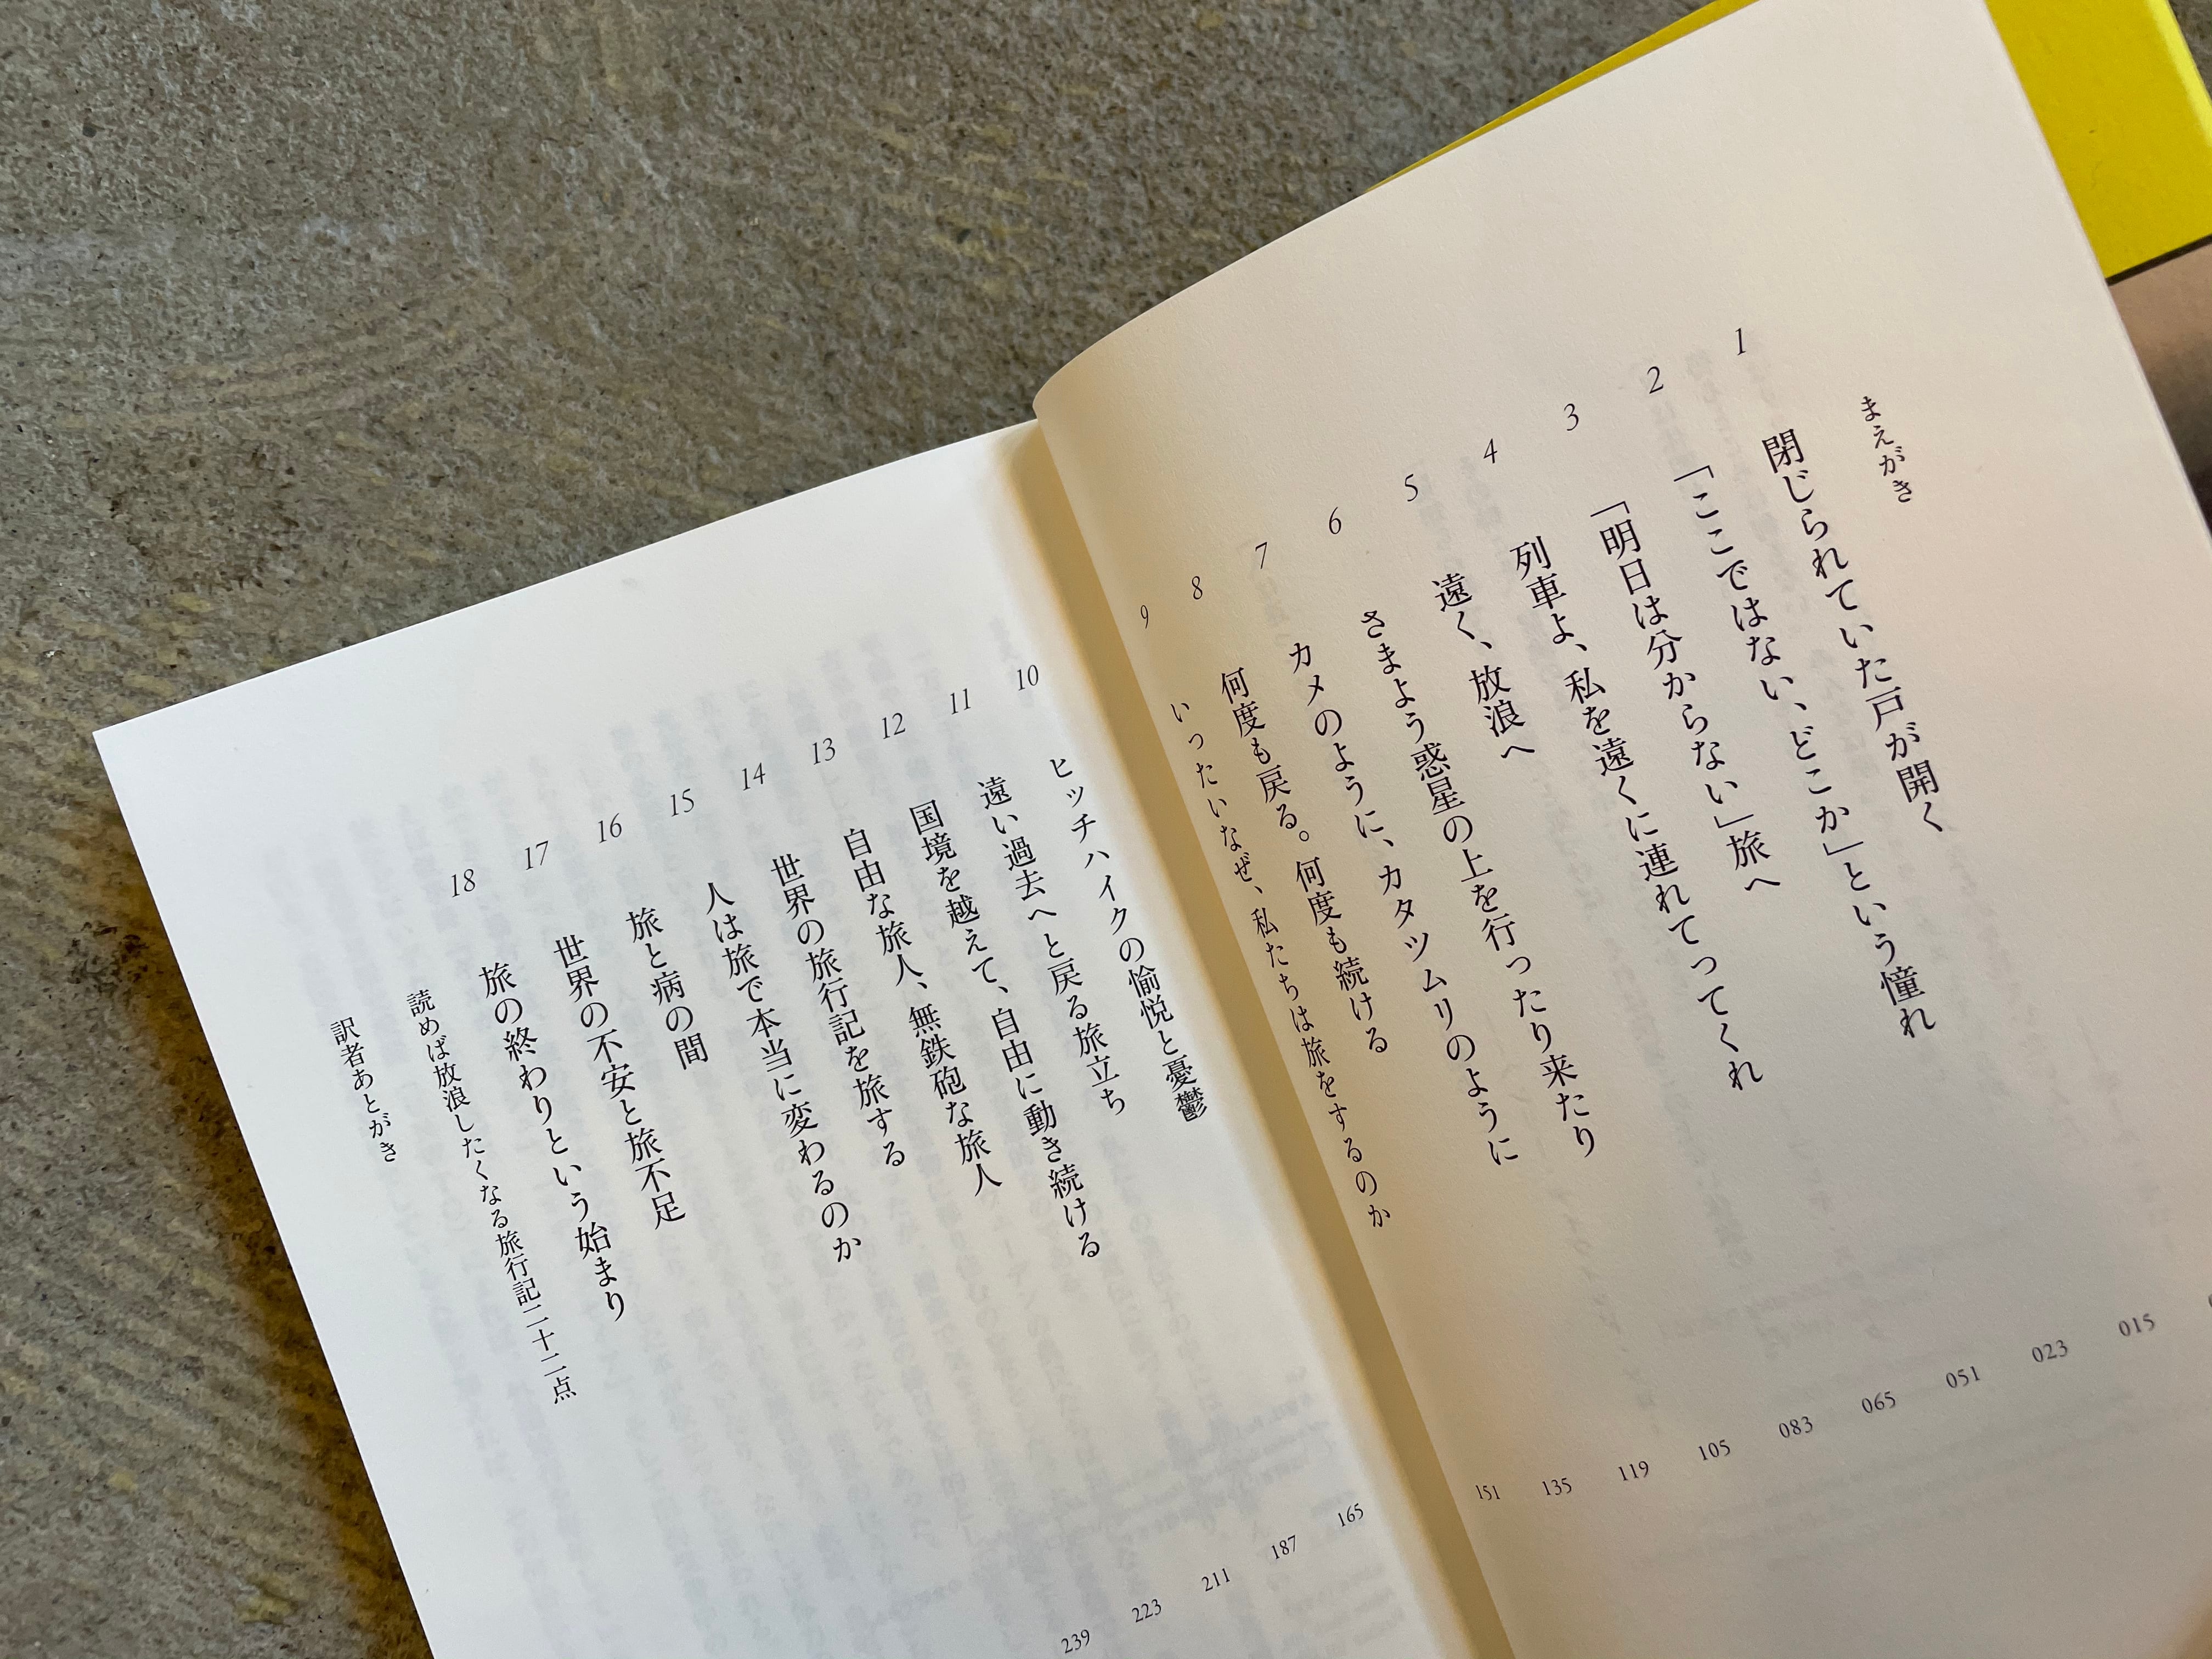 まえがき
1 閉じられていた戸が開く 015
2 「ここではない、どこか」という憧れ 023
3 「明日は分からない」旅へ 051
4 列車よ、私を遠くに連れてってくれ 065
5 遠く、放浪へ 083
6 さまよう惑星の上を行ったり来たり 105
7 カメのように、カタツムリのように 119
8 何度も戻る。何度も続ける 135
9 いったいなぜ、私たちは旅をするのか 151
10 ヒッチハイクの愉悦と憂鬱 165
11 遠い過去へと戻る旅立ち 187
12 国境を越えて、自由に動き続ける 211
13 自由な旅人、無鉄砲な旅人 223
14 世界の旅行記を旅する 239
15 人は旅で本当に変わるのか
16 旅と病の間
17 世界の不安と旅不足
18 旅の終わりという始まり
読めば放浪したくなる旅行記二十二点
訳者あとがき